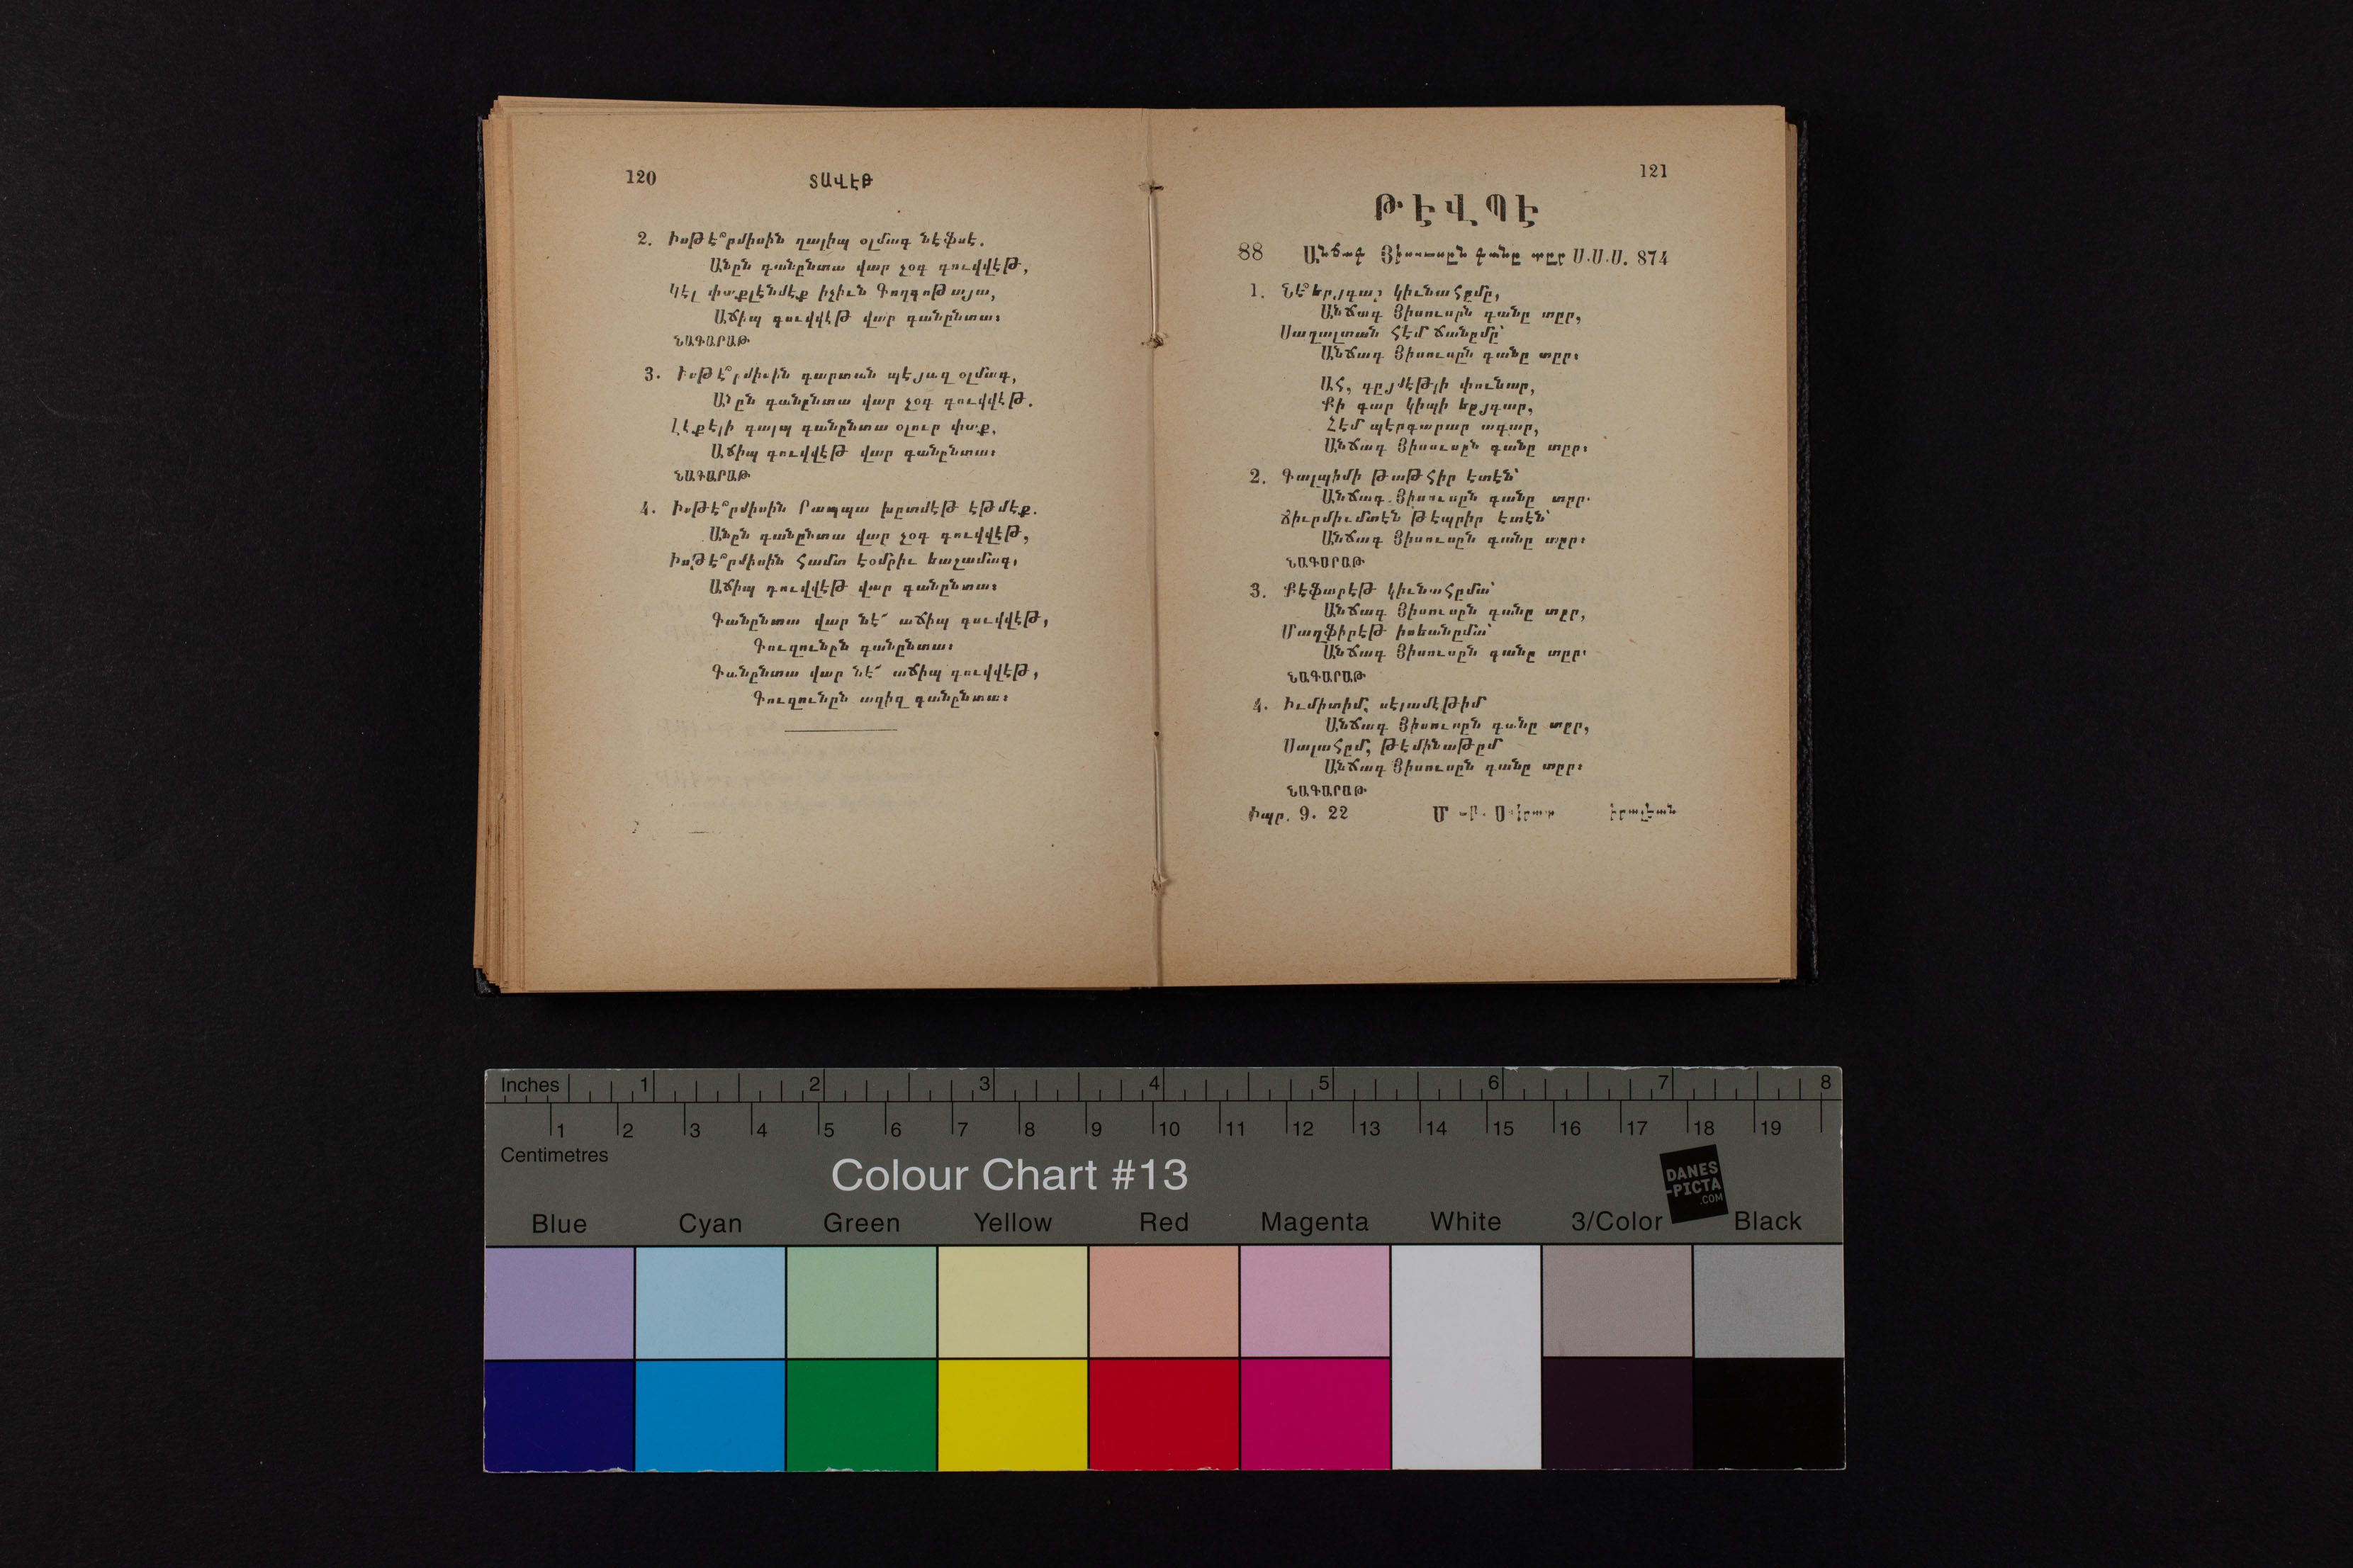 120
ՏԱՎԷԹ
2. Իսթէ՞րմիսին ղալիպ օլմագ նէֆսէ.
Անըն գանընտա վար չօգ գուվվէթ,
Կէլ փաքլէնմէք իչիւն Գողգոթայա,
Աճիպ գուվվէթ վար գանընտա։
ՆԱԳԱՐԱԹ
3. Իսթէ՞րմիսին գարտան պէյազ օլմագ,
Անըն գանընտա վար չօգ գուվվէթ.
Լէքէլի գալպ գանընտա օլուր փաք,
Աճիպ գուվվէթ վար գանընտա։
ՆԱԳԱՐԱԹ
4. Իսթէ՞րմիսին Րապպա խըտմէթ էթմէք.
Անըն գանընտա վար չօգ գուվվէթ,
Իսթէ՞րմիսին համտ էօմրիւ եաչամագ,
Աճիպ գուվվէթ վար գանընտա։
Գանընտա վար նէ՜ աճիպ գուվվէթ,
Գուզունըն գանընտա։
Գանընտա վար նէ՜ աճիպ գուվվէթ,
Գուզունըն ազիզ գանընտա։
121
ԹԷՎՊԷ
88 Անճագ Յիսուսըն գանը տըր Ս.Ս.Ս. 874
1. Նէ՞ եըյգար կիւնահըմը,
Անճագ Յիսուսըն գանը տըր,
Սաղալտան հէմ ճանըմը՝
Անճագ Յիսուսըն գանը տըր։
Ահ, գըյմէթլի փունար,
Քի գար կիպի եըյգար,
Հէմ պէրգարար ագար,
Անճագ Յիսուսըն գանը տըր։
2. Գալպիմի թաթհիր էտէն՝
Անճագ Յիսուսըն գանը տըր.
Ճիւրմիւմտէն թէպրիր էտէն՝
Անճագ Յիսուսըն գանը տըր։
ՆԱԳԱՐԱԹ
3. Քէֆարէթ կիւնահըմա՝
Անճագ Յիսուսըն գանը տըր,
Մաղֆիրէթ իսեանըմա՝
Անճագ Յիսուսըն գանը տըր.
ՆԱԳԱՐԱԹ
4. Իւմիտիմ, սէլամէթիմ
Անճագ Յիսուսըն գանը տըր,
Սալահըմ, թէմինաթըմ
Անճագ Յիսուսըն գանը տըր։
ՆԱԳԱՐԱԹ
Իպր. 9. 22
Inches 1 2 3 4 5 6 7 8
1 2 3 4 5 6 7 8 9 10 11 12 13 14 15 16 17 18 19
Centimetres
Colour Chart #13
DANES
-PICTA
.COM
Blue Cyan Green Yellow Red Magenta White 3/Color Black